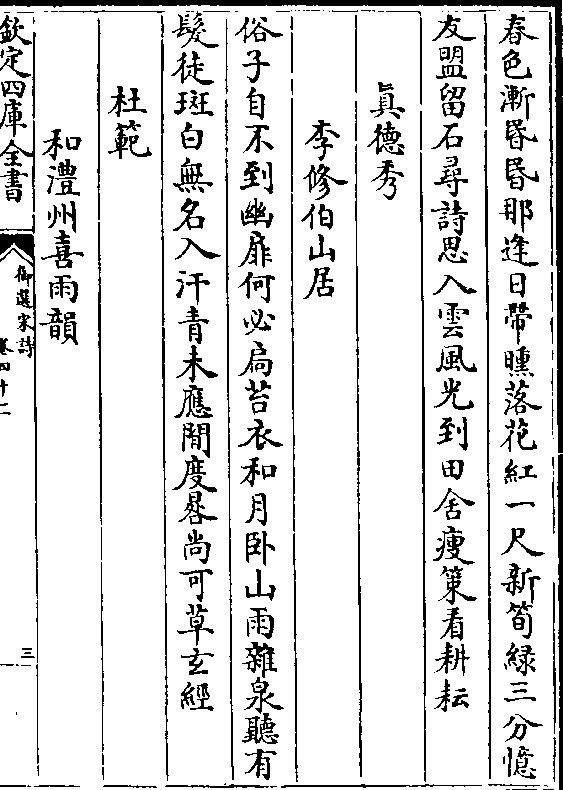 春色漸昬昬那逢日帶曛落花紅一尺新筍緑三分憶
友盟留石尋詩思入雲風光到田舎瘦筞看耕耘
真德秀
李修伯山居
俗子自不到幽扉何必扄苔衣和月卧山雨雜泉聽有
髮徒斑白無名入汗青未應閒度晷尚可草玄經
杜範
和澧州喜雨韻
欽定四庫全書
御選宋詩
卷四十二
三